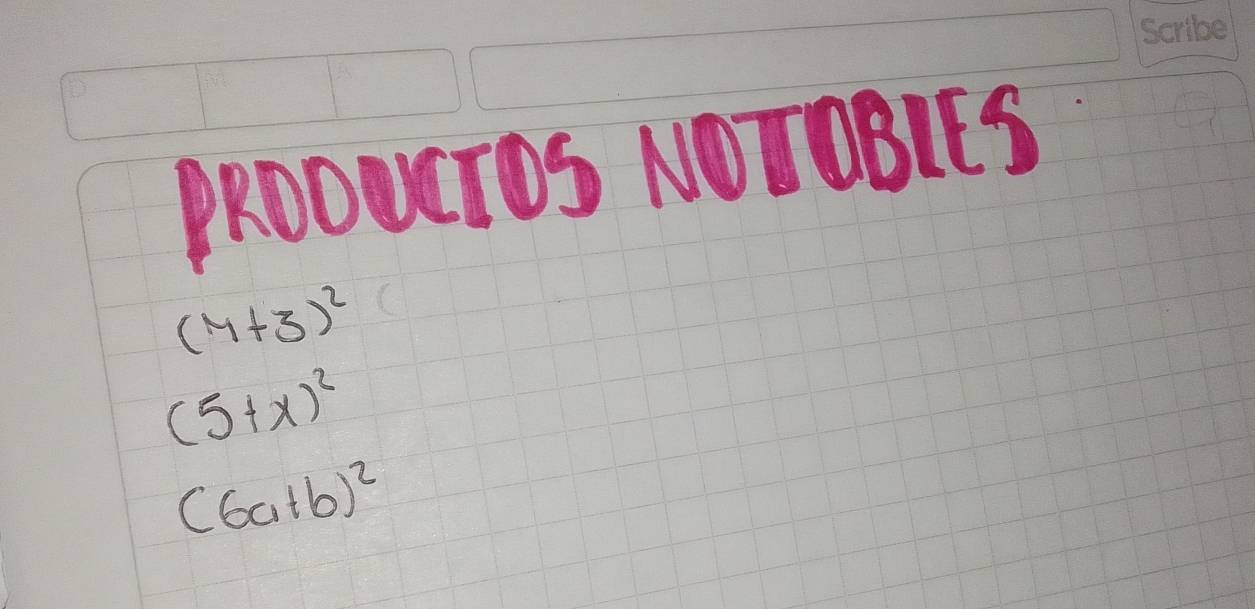 Scribe
D M A
PRODUCTOS NOTABLES
(m+3)²
(5+x)²
(6a+b)²